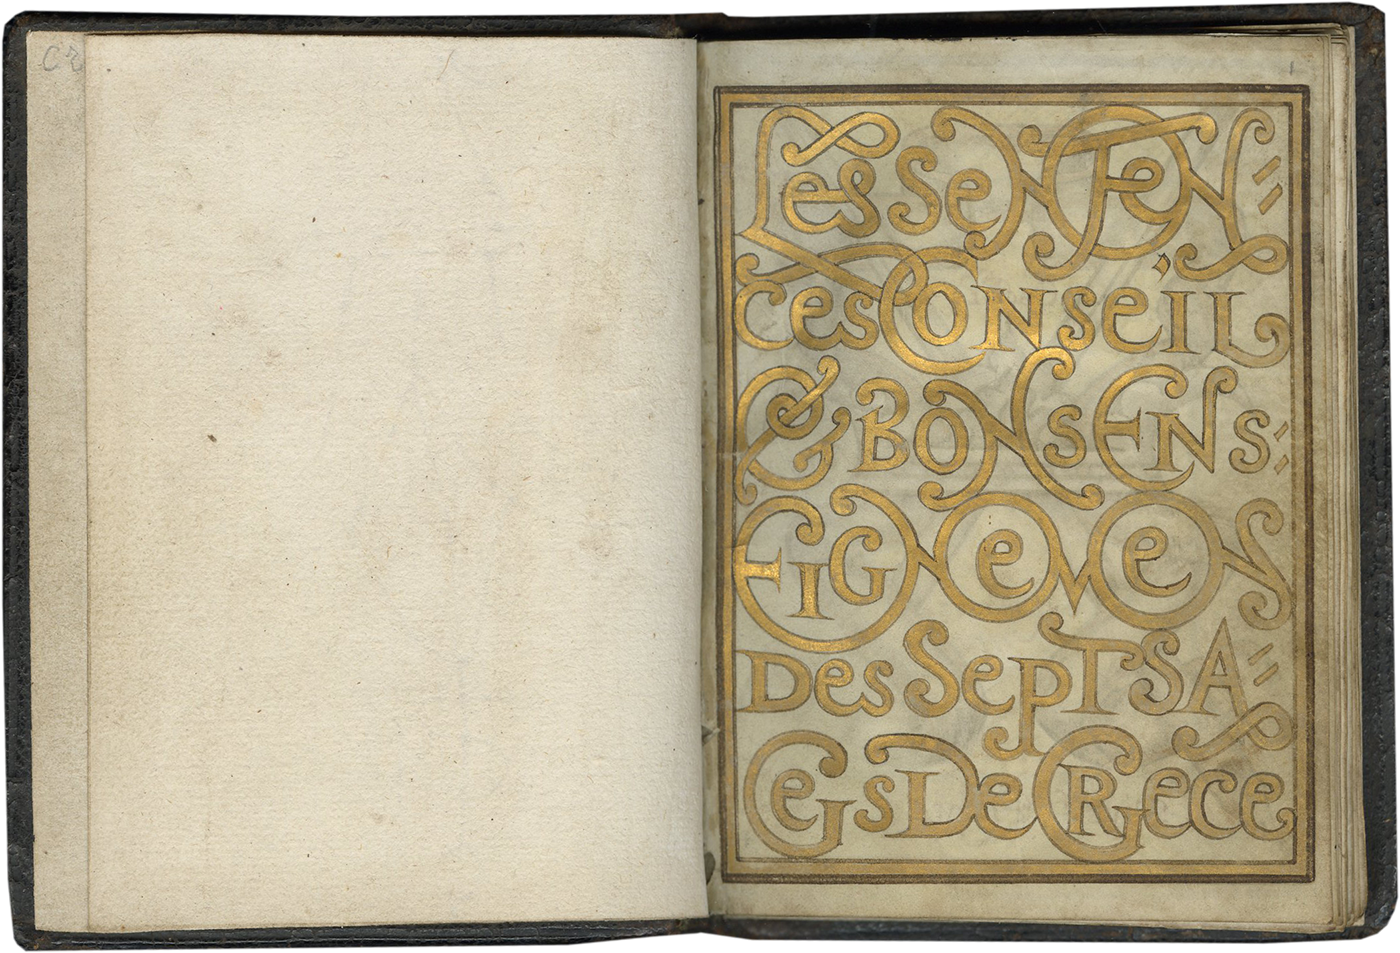 cr
1
Les SeNTeN=
ces CoNseiL
& BoNs ENs:
EIGNeMeNs
Des SepT SA=
Ges De GRece